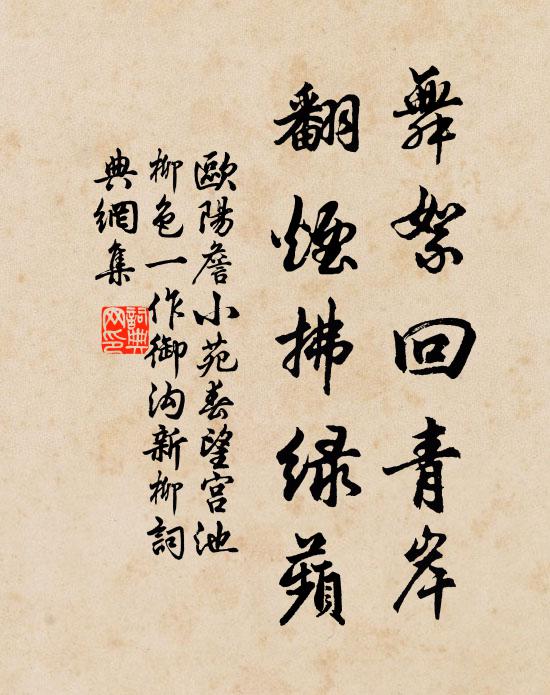 舞絮回青岸
翻煙拂緑蘋
歐陽詹小苑春望宮池
柳色一作御沟新柳詞
典網集
詞典
网印